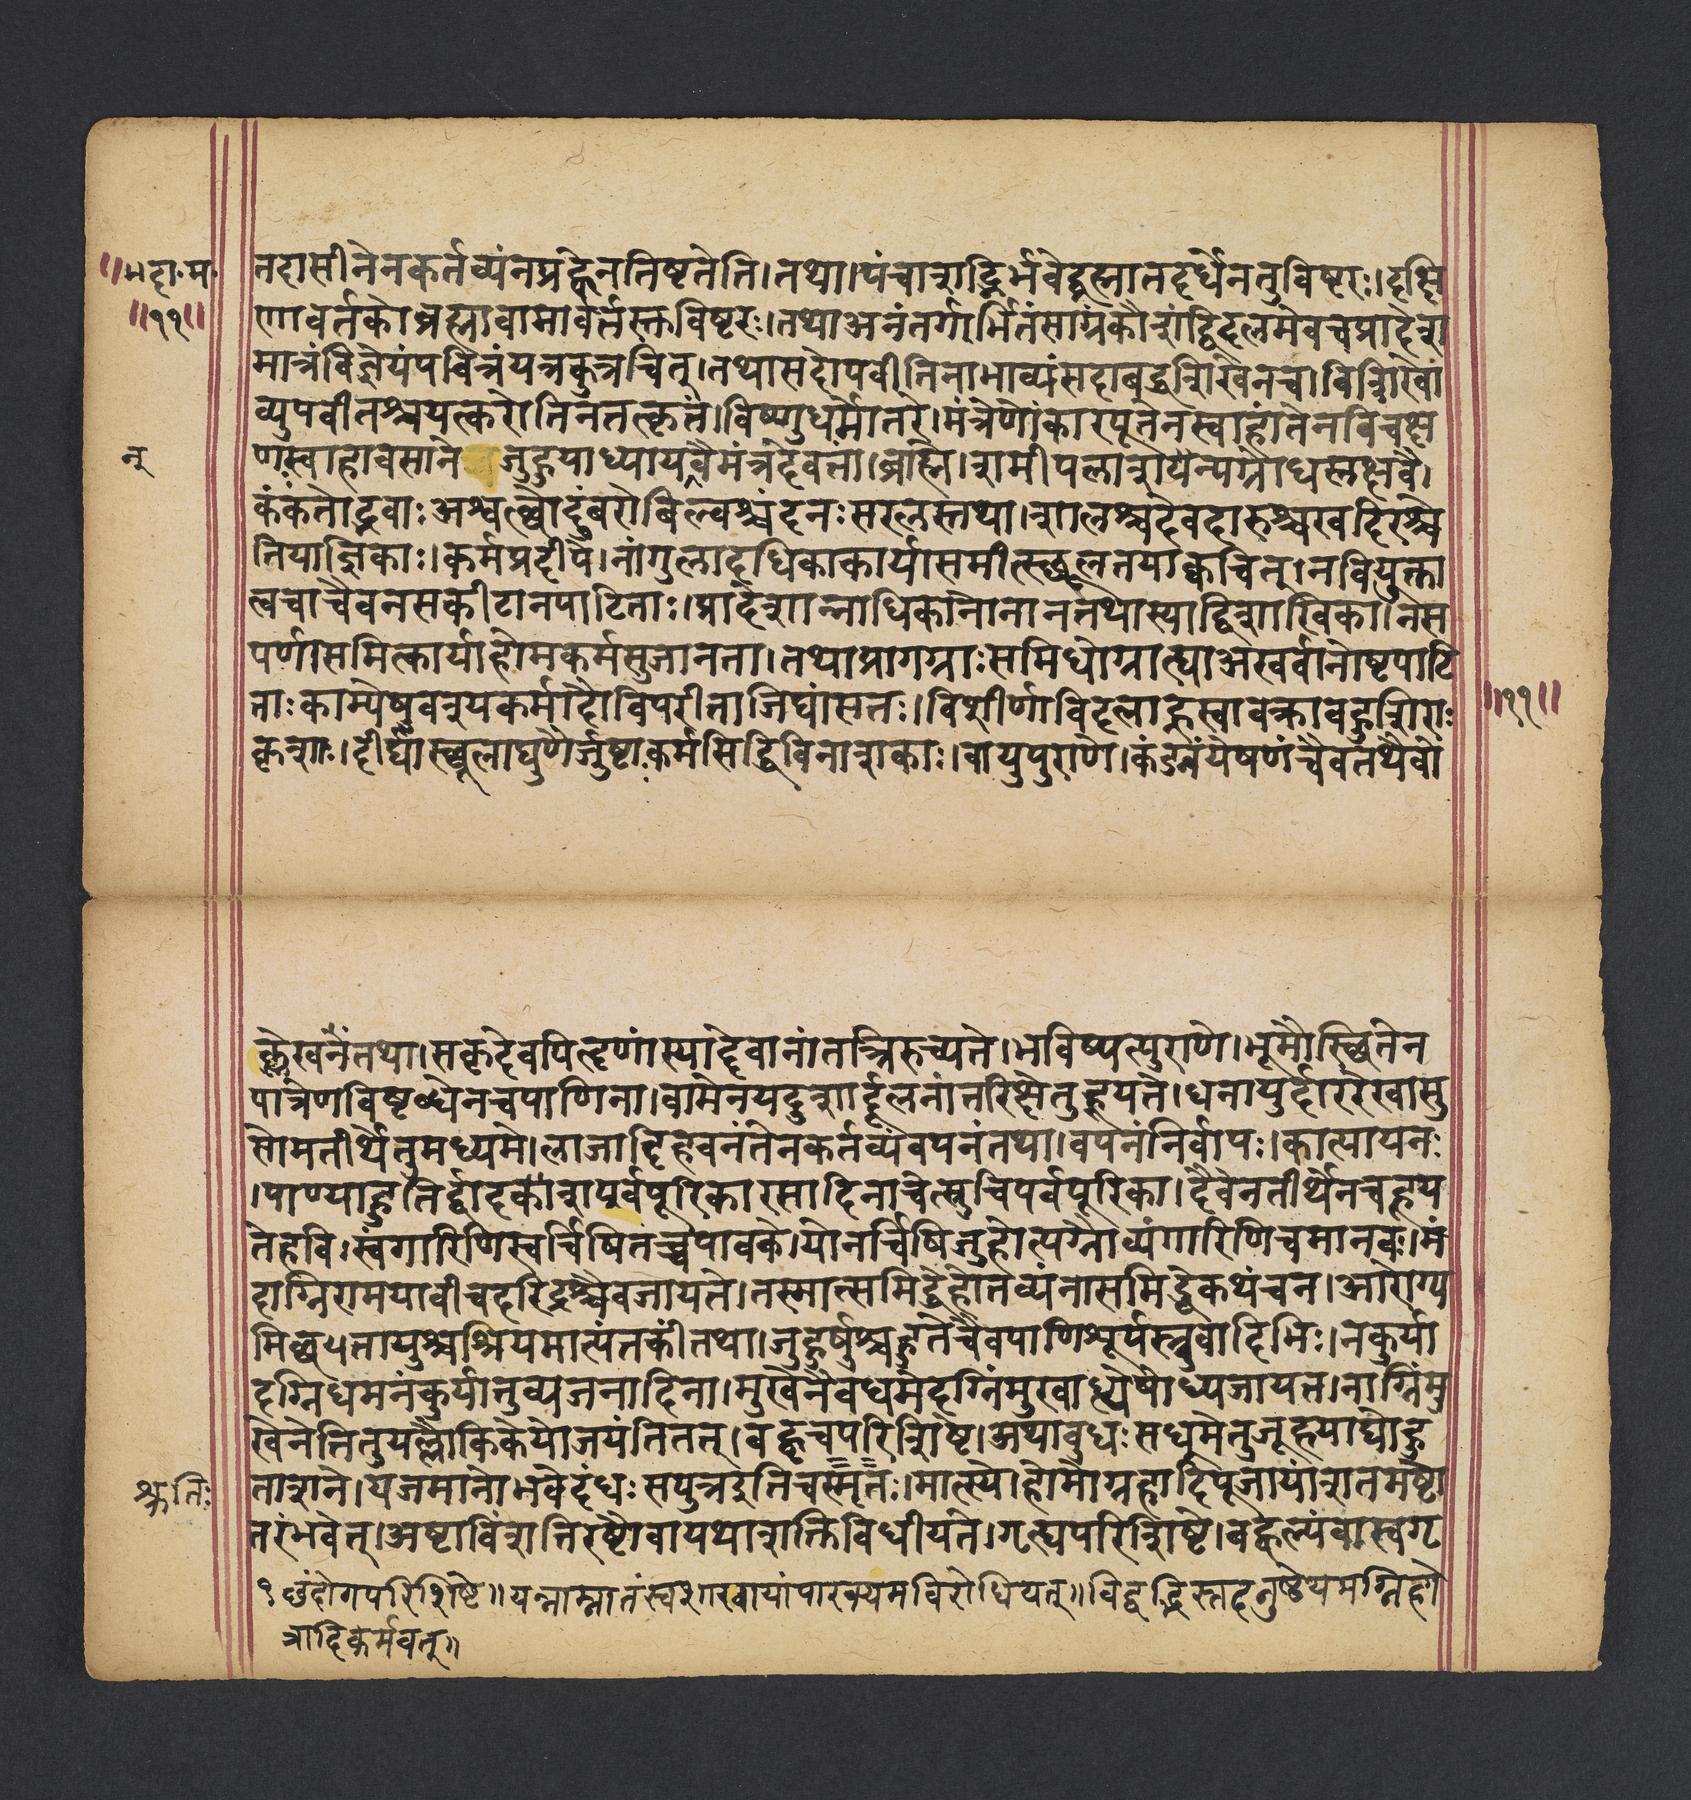 ॥महा॰म॰
॥११॥
नहासीनेनकर्तव्यंनप्रह्वेनतिष्टतेति।तथा।पंचाशद्भिर्भवेद्ब्रह्मातदर्धेनतुविष्टरः।दक्षि
णावर्तकोब्रह्मावामावर्तस्तविष्टरः।तथाअनंतर्गर्भितंसाग्रंकौशंद्विदलमेवचप्रादेश
मात्रंविज्ञेयंपवित्रंयत्रकुत्रचित्।तथासदोपवीतिनाभाव्यंसदाबद्धशिखेनच।विशिखो
व्युपवीतश्चयत्करोतिनतत्कृतं।विष्णुधर्मोतरे।मंत्रेणोंकारपूतेनस्वाहांतेनविचक्ष
नु
णस्वाहावसानेजुहुयाध्यायवैमंत्रदेवतां।ब्राह्मे।शमीपलाशयन्यग्रोधप्लक्षवै।
कंकतोद्भवाः अश्वत्थोदुंबरोबिल्वश्चंदनः सरलस्तथा।शालश्चदेवदारुश्चखदिरश्चे
तियाज्ञिकाः।कर्मप्रदीपे।नांगुलादधिकाकार्यासमीत्स्थूलतयाक्वचित्।नवियुक्ता
त्वचाचैवनसकीटानपाटिताः।प्रादेशान्नाधिकानोनाननतथास्याद्विशाखिका।नस
पर्णासमित्कार्याहोमकर्मसुजानता।तथाप्रागग्राः समिधोग्राह्याअखर्वानोष्टपाटि
ताः काम्येषुवश्यकर्मादौविपरीताजिघांसतः।विशीर्णाविदलाह्रस्वावक्राबहुशिराः
॥११॥
कृशाः।दीर्घास्थूलाघुणैर्जुष्टाकर्मसिद्धिविनाशकाः।वायुपुराणे।कंडनंपेषणंचैवतथैवो
ल्लेखनंतथा।सकृदेवपितॄणांस्याद्देवानांतत्रिरुच्यते।भविष्यत्पुराणे।भूमौस्थितेन
पात्रेणविष्टब्धेनचपाणिना।वामेनयदुशार्दूलनांतरिक्षेतुहूयते।धनायुर्दाररेखासु
सोमतीर्थेतुमध्यमे।लाजादिहवनंतेनकर्तव्यंवपनंतथा।वपनंनिर्वापः।कात्यायनः
।पाण्याहुतिर्द्वादशपर्वपूरिकारसादिनाचेत्स्रुचिपर्वपूरिका।दैवेनतीर्थेनचहूय
तेहवि।स्वंगारिणिस्वर्चिषितच्चपावके।योनर्चिषिजुहोत्यग्नौव्यंगारिणिचमानवः।मं
दाग्निरामयावीचदरिद्रश्चैवजायते।तस्मात्समिद्धेहोतव्यंनासमिद्धेकथंचन।आरोग्य
मिछतायुश्चश्रियमात्यंतकींतथा।जुहुर्षुश्चहुतेचैवपाणिशूर्पस्त्रुवादिभिः।नकुर्या
दग्निधमनंकुर्यातुव्यजनादिना।मुखेनैवधमेदग्निंमुखाध्येषोध्यजायत।नाग्निंमु
खेनेतितुयल्लौकिकेयोजयंतितत्।बह्वृचपरिशिष्टे।अथाबुधः सधूमेतुजूहुयाद्योहु
श्रुतिः
ताशने।यजमानोभवेदंधः सपुत्रइतिचस्मृतः।मात्स्ये।होमोग्रहादिपूजायांशतमष्टो
तरंभवेत्।अष्टाविंशतिरष्टौवायथाशक्तिविधीयते।गृह्यपरिशिष्टे।बह्वल्पंवास्वगृ
१ छंदोगपरिशिष्टे॥यन्नाम्नातंस्वशाखायांपारक्यमविरोधियत्॥विद्वद्भिस्तदनुष्ठेयमग्निहो
त्रादिकर्मवत्॥